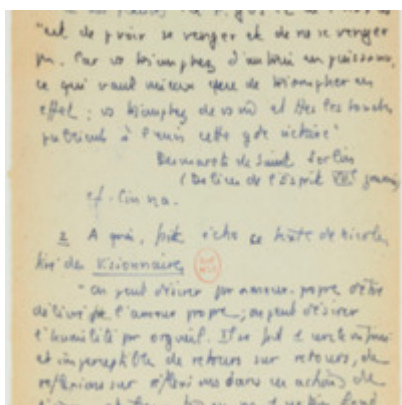 "est de pouvoir se venger et de ne se venger
pas. Car vs triomphez d'autrui en puissance,
ce qui vaut mieux que de triompher en
effet ; vs triomphez de vs
publient à l'envi cette gde victoire"
Desmarets de Saint Sorlin
(Délices de l'Esprit
cf. Cinna.
2 A quoi, fait écho ce texte de Nicole,
tiré des Visionnaires
"on peut désirer par amour-propre d'être
délivré de l'amour propre ; on peut désirer
l'humilité par orgueil. Il se fait 1 cercle infini
et imperceptible de retours sur retours, de
réflexions sur réflexions dans ces actions de